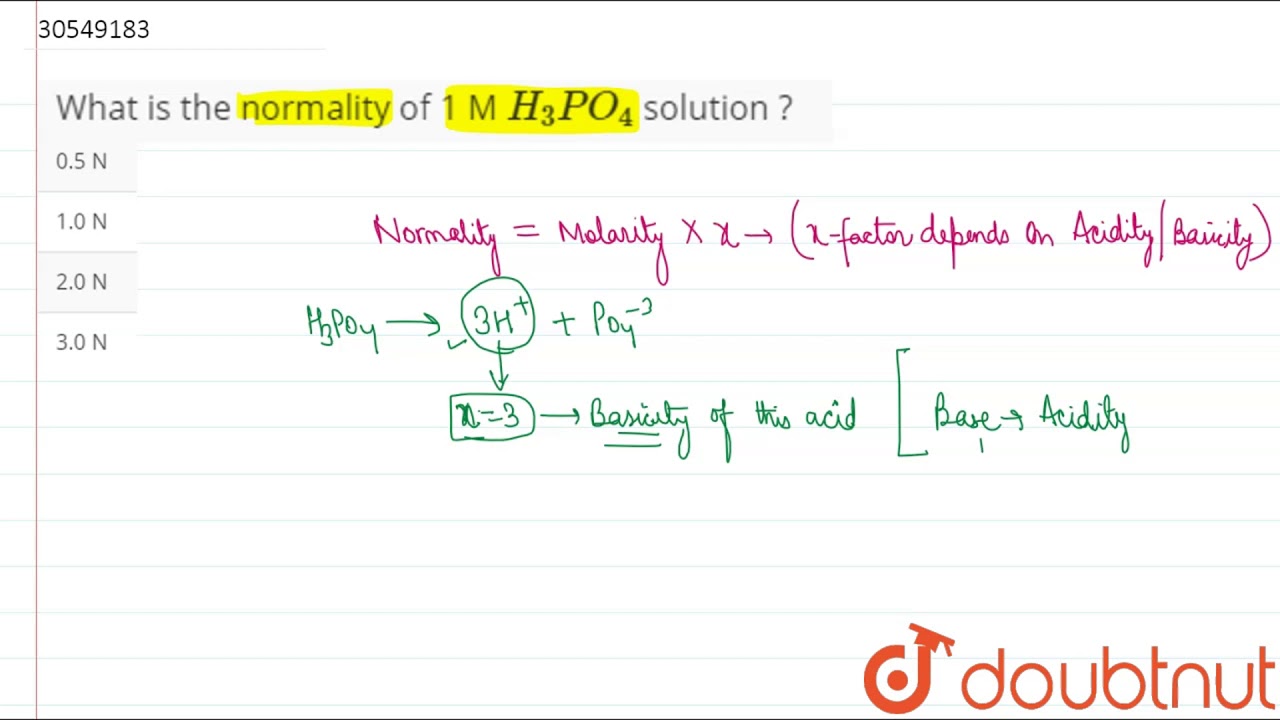 30549183
What is the normality of 1 M H₃PO₄ solution ?
0.5 N
1.0 N
2.0 N
3.0 N
Normality = Molarity × x → (x-factor depends on Acidity/Basicity)
H₃PO₄ → 3H⁺ + PO₄⁻³
x=3 → Basicity of this acid [ Base → Acidity
doubtnut